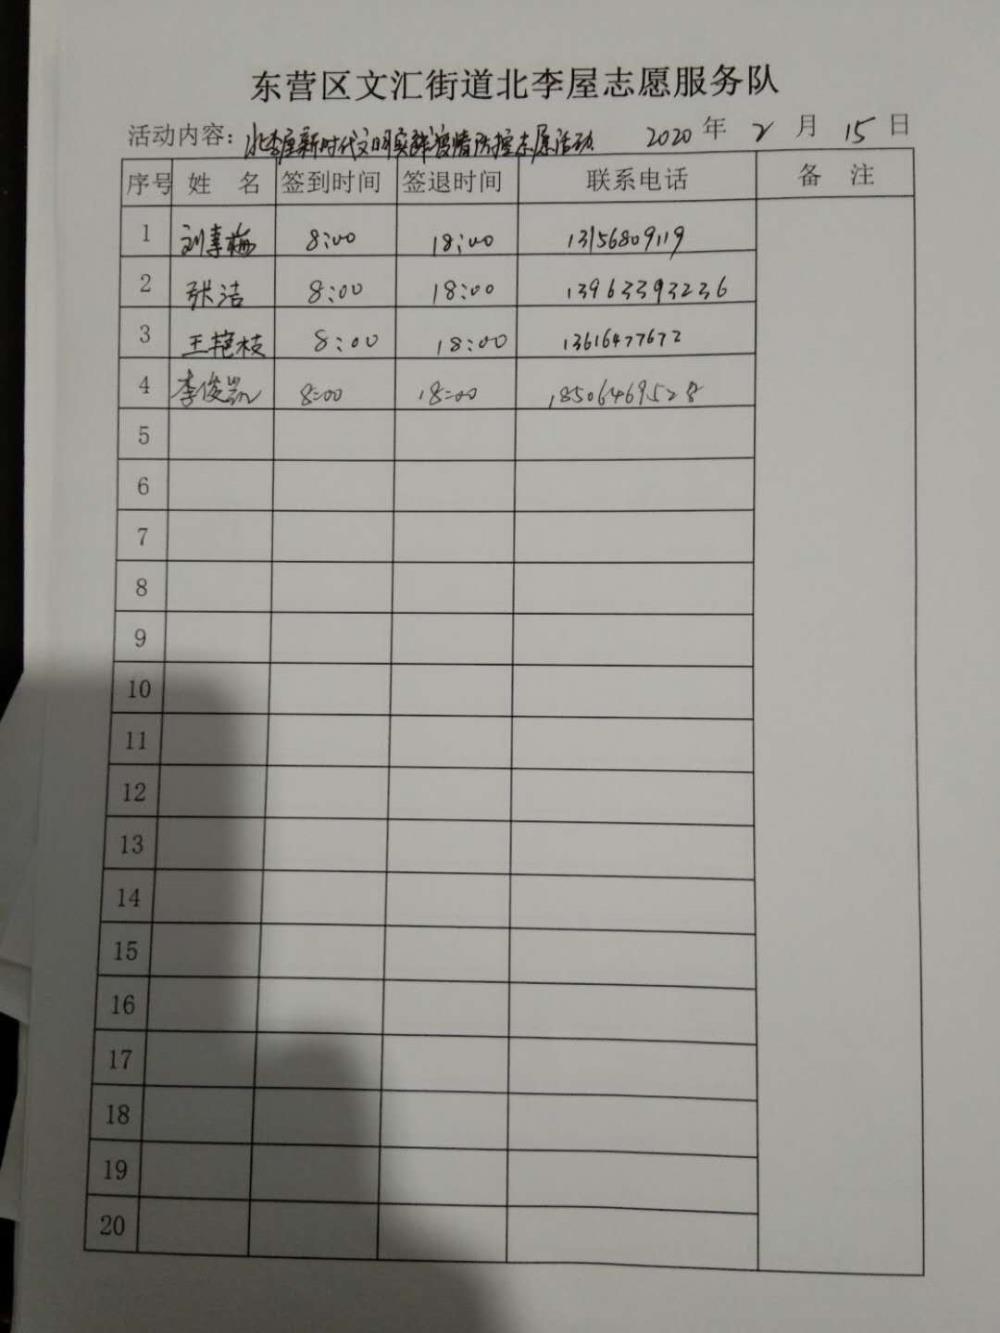 东营区文汇街道北李屋志愿服务队
活动内容：北李屋新时代文明实践疫情防控志愿活动 2020年2月15日
序号 姓 名 签到时间 签退时间 联系电话 备 注
1 刘春梅 8:00 18:00 13156809119
2 张洁 8:00 18:00 13963393236
3 王艳枝 8:00 18:00 13616477672
4 李俊凯 8:00 18:00 18506469528
5
6
7
8
9
10
11
12
13
14
15
16
17
18
19
20